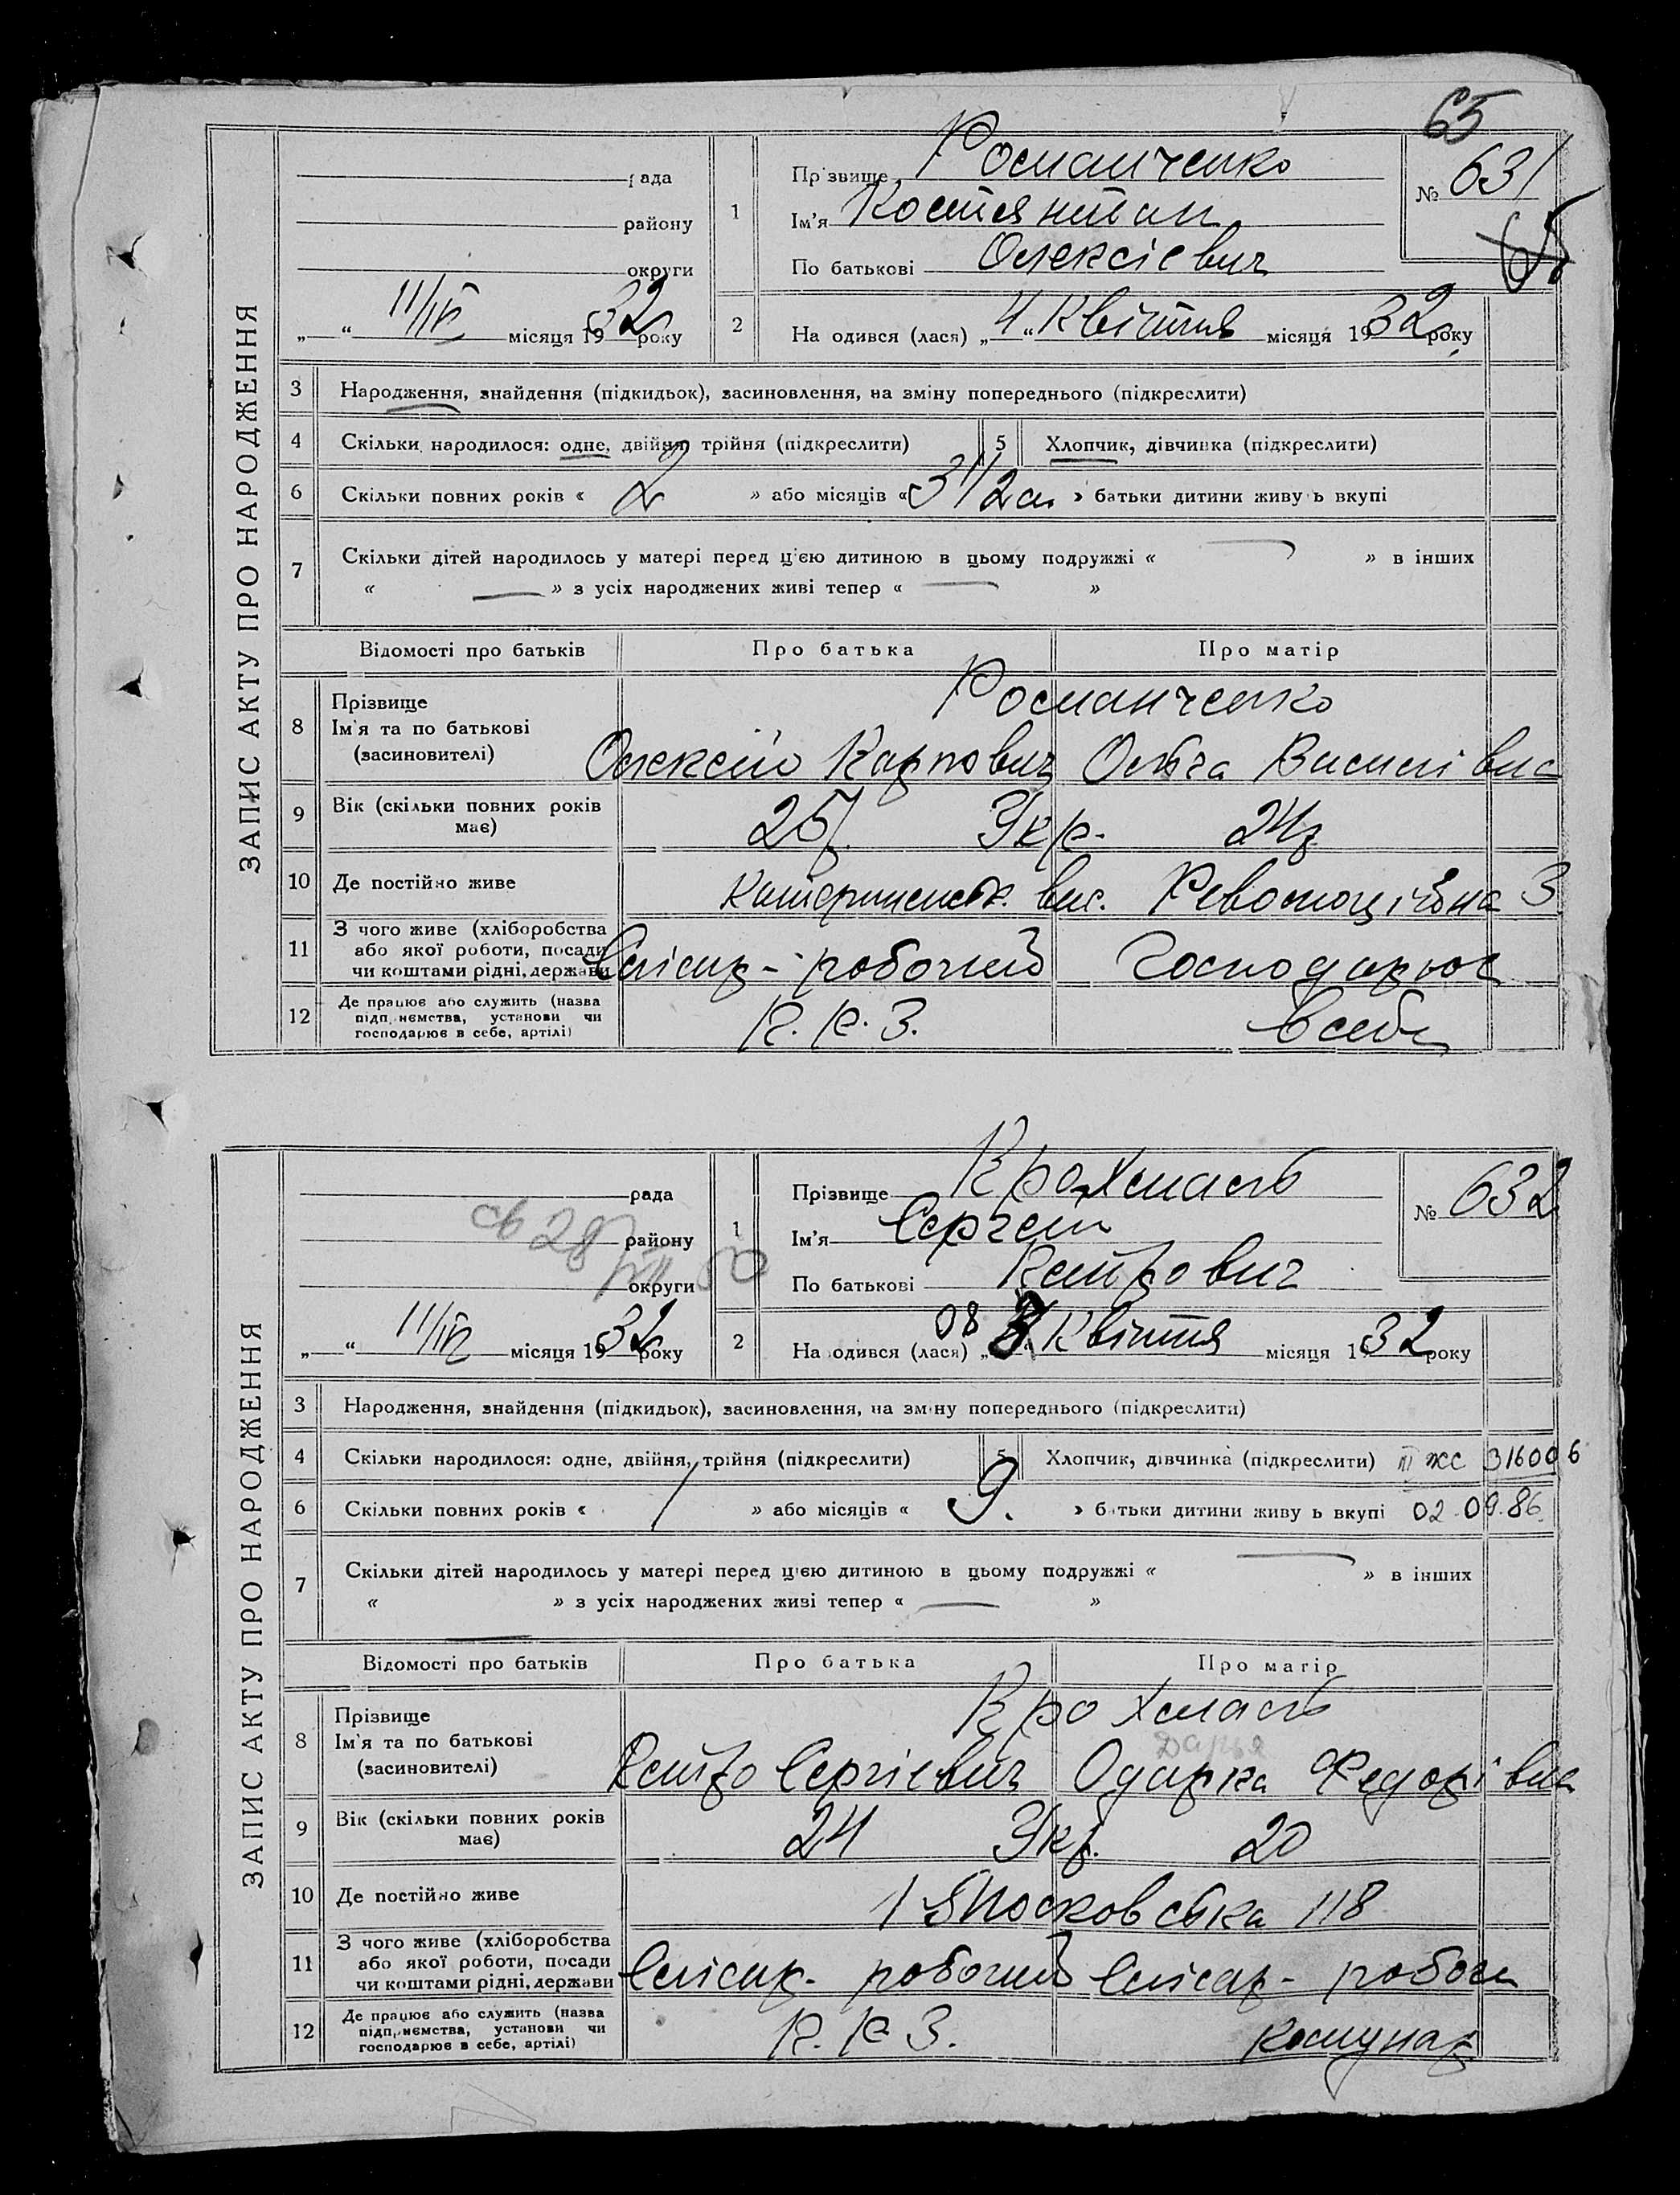 65
ЗАПИС АКТУ ПРО НАРОДЖЕННЯ
рада
району
округи
„ “ 11/IV місяця 1932 року
1 Прізвище Романченко
Ім'я Костянтин
По батькові Олексієвич
№ 631
65
2 На одився (лася) „4“ Квітня місяця 1932 року
3 Народження, знайдення (підкидьок), засиновлення, на зміну попереднього (підкреслити)
4 Скільки народилося: одне, двійня, трійня (підкреслити) 5 Хлопчик, дівчинка (підкреслити)
6 Скільки повних років « 2 » або місяців « 3 1/2 м » батьки дитини живу ь вкупі
7 Скільки дітей народилось у матері перед цією дитиною в цьому подружжі « — » в інших
« — » з усіх народжених живі тепер « — »
Відомості про батьків Про батька Про матір
8 Прізвище
Ім'я та по батькові
(засиновителі)
Романченко
Олексій Карпович Ольга Василівна
9 Вік (скільки повних років
має)
Укр. 24р.
10 Де постійно живе вул. Революційна 3
11 З чого живе (хліборобства
або якої роботи, посади
чи коштами рідні, держави
Слісар - робочий Господарює
12 Де працює або служить (назва
підприємства, установи чи
господарює в себе, артілі)
П. Р. З. в себе
ЗАПИС АКТУ ПРО НАРОДЖЕННЯ
рада
району
округи
св 28
50
„ “ 11/IV місяця 1932 року
1 Прізвище Крохмаль
Ім'я Сергей
По батькові Петрович
№ 632
2 На одився (лася) „ 08 8“ Квітня місяця 1932 року
3 Народження, знайдення (підкидьок), засиновлення, на зміну попереднього (підкреслити)
4 Скільки народилося: одне, двійня, трійня (підкреслити) 5 Хлопчик, дівчинка (підкреслити) III ЖС 316006
6 Скільки повних років « 1 » або місяців « 9. » батьки дитини живу ь вкупі 02.09.86
7 Скільки дітей народилось у матері перед цією дитиною в цьому подружжі « — » в інших
« — » з усіх народжених живі тепер « — »
Відомості про батьків Про батька Про матір
8 Прізвище
Ім'я та по батькові
(засиновителі)
Крохмаль
Дарья
Петро Сергієвич Одарка Федорівна
9 Вік (скільки повних років
має)
24 Укр. 20
10 Де постійно живе 1 Московська 118
11 З чого живе (хліборобства
або якої роботи, посади
чи коштами рідні, держави
Слісар - робочий Слісар - робоч
12 Де працює або служить (назва
підприємства, установи чи
господарює в себе, артілі)
П. Р. З. Комунар